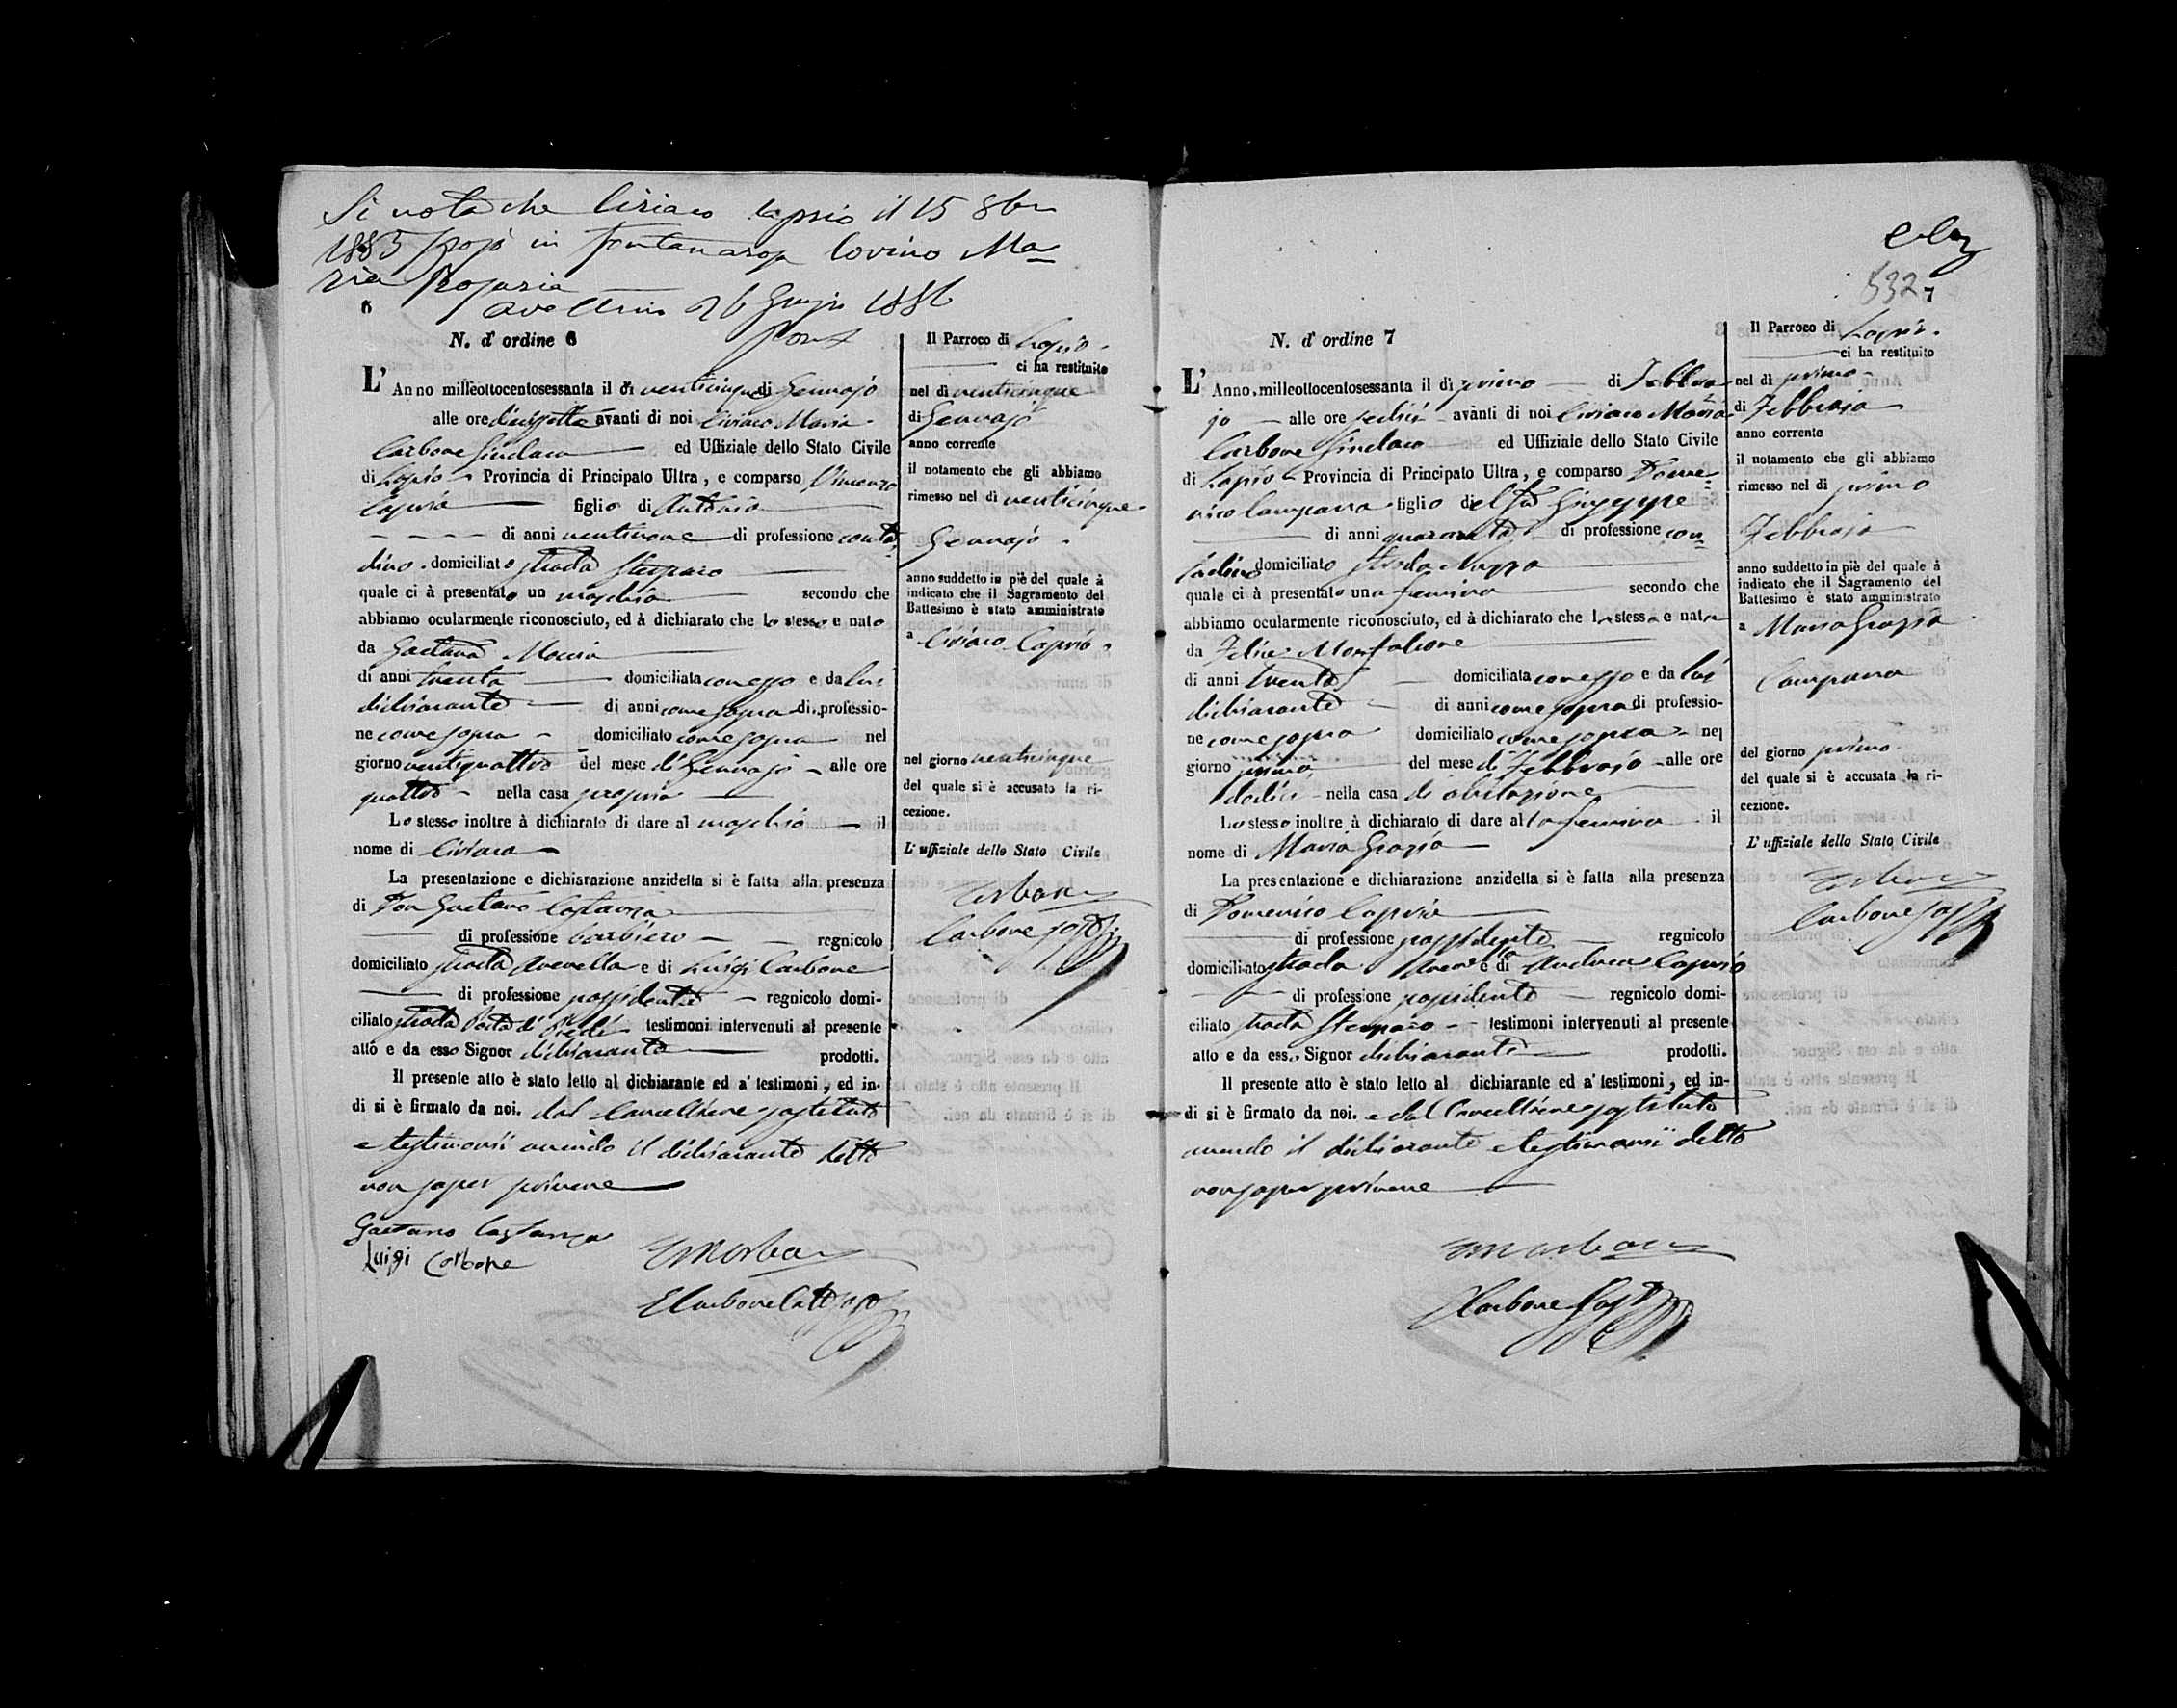 Si nota che Ciriaco Caprio il 15 8bre
1885 sposò in Fontanarosa Covino Ma=
ria Rosaria
Avellino 26 1886
6
N. d' ordine 6
L' Anno milleottocentosessanta il dì venticinque di Gennajo
alle ore diecisette avanti di noi Ciriaco Maria
Carbone Sindaco ed Uffiziale dello Stato Civile
di Lapio Provincia di Principato Ultra, e comparso Vincenzo
Caprio figlio di Antonio
di anni ventinove di professione conta=
dino domiciliato strada Sterparo
quale ci à presentato un maschio secondo che
abbiamo ocularmente riconosciuto, ed à dichiarato che lo stesso e nato
da Gaetana
di anni trenta domiciliata con esso e da lui
dichiarante di anni come sopra di professio-
ne come sopra domiciliato come sopra nel
giorno ventiquattro del mese di Gennajo alle ore
quattro nella casa propria
Lo stesso inoltre à dichiarato di dare al maschio il
nome di Ciriaco
La presentazione e dichiarazione anzidetta si è fatta alla presenza
di Don Gaetano Costanza
di professione barbiero regnicolo
domiciliato strada Avenella e di Luigi Carbone
di professione possidente regnicolo domi-
ciliato strada Porta di testimoni intervenuti al presente
atto e da esso Signor dichiarante prodotti.
Il presente atto è stato letto al dichiarante ed a' testimoni, ed in-
di si è firmato da noi. dal Cancelliere sostituto
e testimonii avendo il dichiarante detto
non saper scrivere
Gaetano Costanza
Luigi Carbone
Carbone
Il Parroco di Lapio
ci ha restituito
nel dì venticinque
di Gennajo
anno corrente
il notamento che gli abbiamo
rimesso nel dì venticinque
Gennajo
anno suddetto in piè del quale à
indicato che il Sagramento del
Battesimo è stato amministrato
a Ciriaco Caprio
nel giorno venticinque
del quale si è accusato la ri-
cezione.
L' uffiziale dello Stato Civile
Carbone
Carbone sost
532 7
N. d' ordine 7
L' Anno milleottocentosessanta il dì primo di Febbra
jo alle ore sedici avanti di noi Ciriaco Maria
Carbone Sindaco ed Uffiziale dello Stato Civile
di Lapio Provincia di Principato Ultra, e comparso Dome=
nico Campana figlio del fu Giuseppe
di anni quaranta di professione con=
tadino domiciliato strada
quale ci à presentato una femina secondo che
abbiamo ocularmente riconosciuto, ed à dichiarato che la stessa e nata
da Felice Monfalcone
di anni trenta domiciliata con esso e da lui
dichiarante di anni come sopra di professio-
ne come sopra domiciliato come sopra nel
giorno primo del mese di Febbrajo alle ore
dodici nella casa di abitazione
Lo stesso inoltre à dichiarato di dare al la femina il
nome di Maria Grazia
La presentazione e dichiarazione anzidetta si è fatta alla presenza
di Domenico Caprio
di professione possidente regnicolo
domiciliato strada e di Andrea Caprio
di professione possidente regnicolo domi-
ciliato strada Sterparo testimoni intervenuti al presente
atto e da esso Signor dichiarante prodotti.
Il presente atto è stato letto al dichiarante ed a' testimoni, ed in-
di si è firmato da noi. e dal Cancelliere sostituto
avendo il dichiarante e testimonii detto
non saper scrivere
Carbone Sost
Il Parroco di Lapio
ci ha restituito
nel dì primo
di Febbrajo
anno corrente
il notamento che gli abbiamo
rimesso nel dì primo
Febbrajo
anno suddetto in piè del quale à
indicato che il Sagramento del
Battesimo è stato amministrato
a Maria Grazia
Campana
del giorno primo
del quale si è accusata la ri-
cezione.
L' uffiziale dello Stato Civile
Carbone
Carbone sost